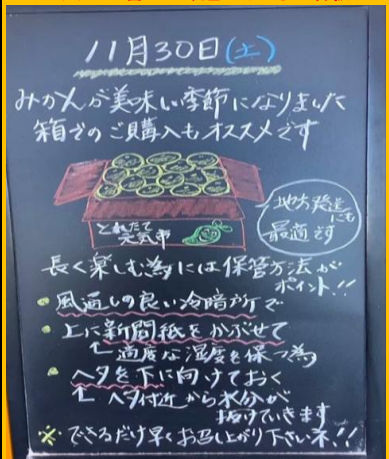 11月30日(土)
みかんが美味い季節になりました
箱でのご購入もオススメです
とれたて
元気市
地方発送
にも
最適です
長く楽しむ為には保管方法が
ポイント!!
風通しの良い冷暗所で
上に新聞紙をかぶせて
↑適度な湿度を保つ為
ヘタを下に向けておく
↑ヘタ付近から水分が
抜けていきます
※できるだけ早くお召し上がり下さいネ!!